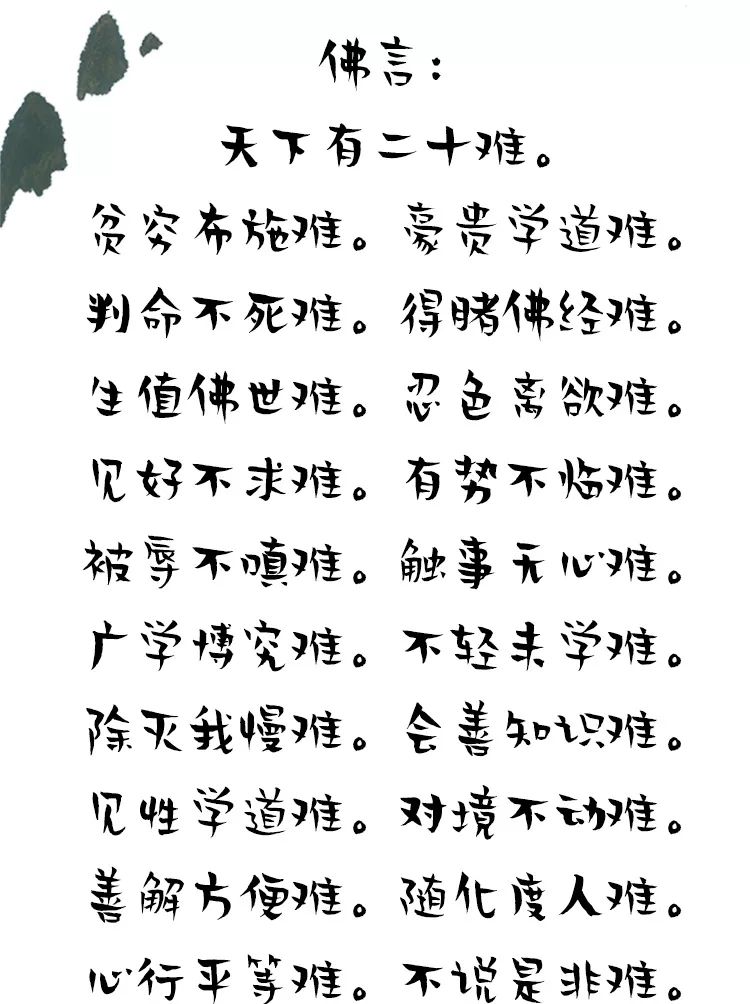 佛言：
天下有二十难。
贫穷布施难。豪贵学道难。
判命不死难。得睹佛经难。
生值佛世难。忍色离欲难。
见好不求难。有势不临难。
被辱不嗔难。触事无心难。
广学博究难。不轻未学难。
除灭我慢难。会善知识难。
见性学道难。对境不动难。
善解方便难。随化度人难。
心行平等难。不说是非难。